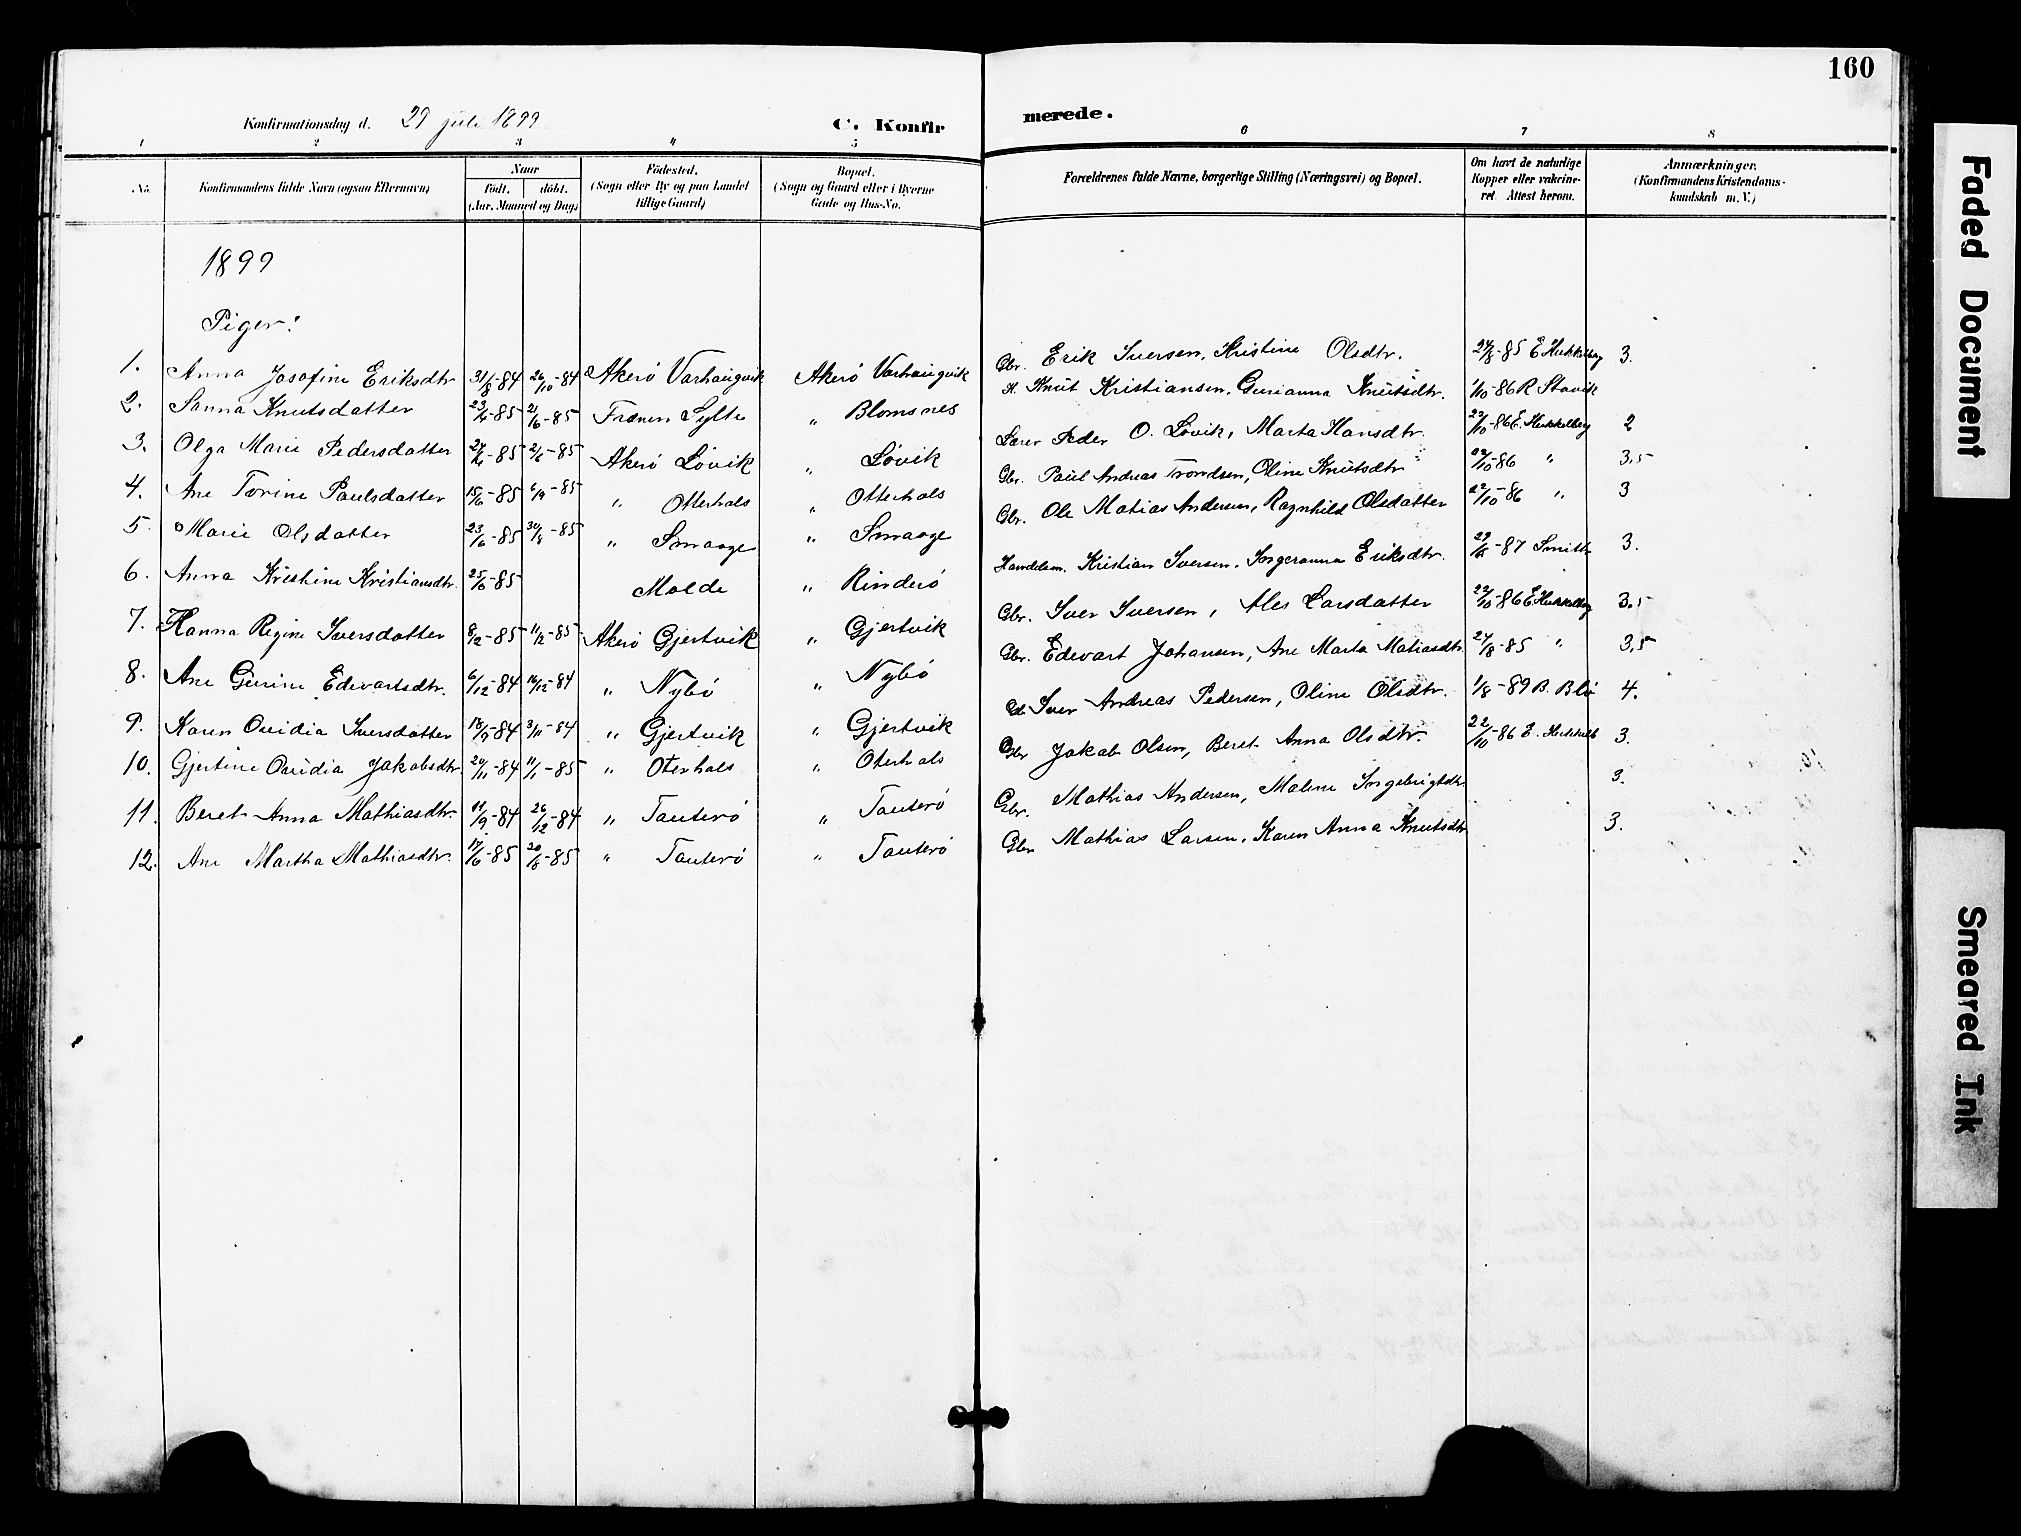 160
Konfirmationsdag d. 29 juli 1899
C. Konfirmerede.
1 2 3 4 5 6 7 8
No. Konfirmandens fulde Navn (ogsaa Efternavn) Naar födt. döbt. (Aar, Maaned og Dag) Födested. (Sogn eller By og paa Landet tillige Gaard) Bopæl. (Sogn og Gaard eller i Byerne Gade og Hus-No. Forældrenes fulde Navne, borgerlige Stilling (Næringsvei) og Bopæl. Om havt de naturlige Kopper eller vakcineret. Attest herom. Anmærkninger. (Konfirmandens Kristendomskundskab m. V.)
1899
Piger:
1. Anna Josefine Eriksdtr 31/8-84 26/10-84 Akerö Varhaugvik Akerö Varhaugvik Gbr. Erik Iversen, Kristine Olsdtr. 27/8-85 E Hukkelberg 3.
2. Sanna Knutsdatter 23/4-85 21/6-85 Frænen Sylte " Blomsnes Knut Kristiansen, Gurianna Knutsdtr. 1/10-86 R Stavik
3. Olga Marie Pedersdatter 27/4-85 2/6-85 Akerö Lövik " Lövik Lærer Peder O. Lövik, Marta Hansdtr. 22/10-86 E. Hukkelberg 2
4. Ane Torine Paulsdatter 15/6-85 6/9-85 " Otterhals " Otterhals Gbr. Paul Andreas Trondsen, Oline Knutsdtr 22/10-86 " 3,5
5. Marie Olsdatter 23/6-85 30/8-85 " Smaage " Smaage Gbr. Ole Matias Andersen, Ragnhild Olsdatter 22/10-86 " 3
6. Anna Kristine Kristiansdtr. 25/6-85 Molde " Rinderö Handelsm. Kristian Iversen, Ingeranna Eriksdtr. -87 Smith 3.
7. Hanna Regine Iversdatter -85 11/12-85 Akerö Gjertvik " Gjertvik Gbr. Iver Iversen, Ales Larsdatter 22/10-86 E Hukkelberg 3,5
8. Ane Gurine Edevartsdtr. 6/12-84 16/12-84 " Nybö " Nybö Gbr. Edevart Johansen, Ane Marta Matiasdtr. 27/8-85 " 3,5
9. Karen Ovidia Iversdatter 18/9-84 3/11-84 " Gjertvik " Gjertvik Iver Andreas Pedersen, Oline Olsdtr. 1/8-89 B. Blö 4.
10. Gjertine Ovidia Jakobsdtr. 20/11-84 11/1-85 " Oterhals " Oterhals Gbr Jakob Olsen, Beret Anna Olsdtr. 22/10-86 E. Hukkelb 3.
11. Beret Anna Mathiasdtr. 11/9-84 26/12-84 " Tauterö " Tauterö Gbr. Mathias Andersen, Malene Ingebrigtdtr. 3.
12. Ane Martha Mathiasdtr. 17/6-85 30/8-85 " Tauterö " Tauterö Gbr Mathias Larsen, Karen Anna Knutsdtr 3.
Faded Document
Smeared Ink